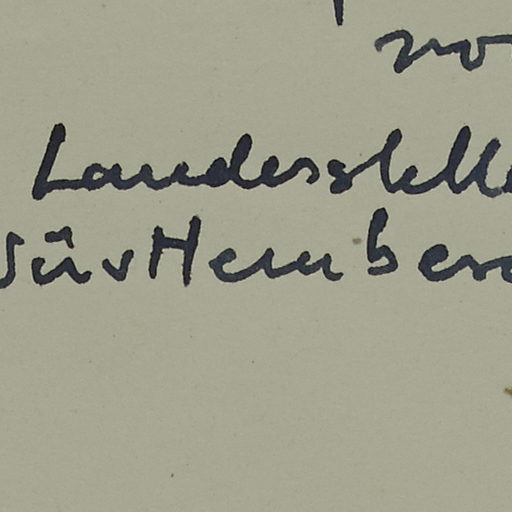 Landesstelle
Württemberg